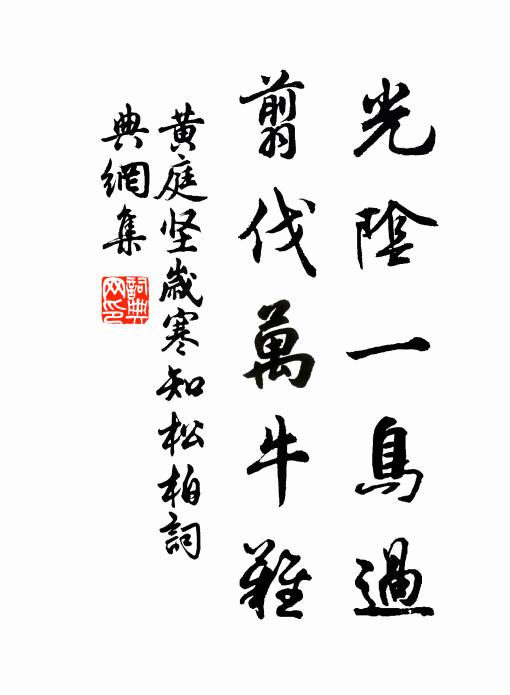 光陰一鳥過
翦伐萬牛難
黄庭坚歲寒知松柏詞
典網集
詞典
网印